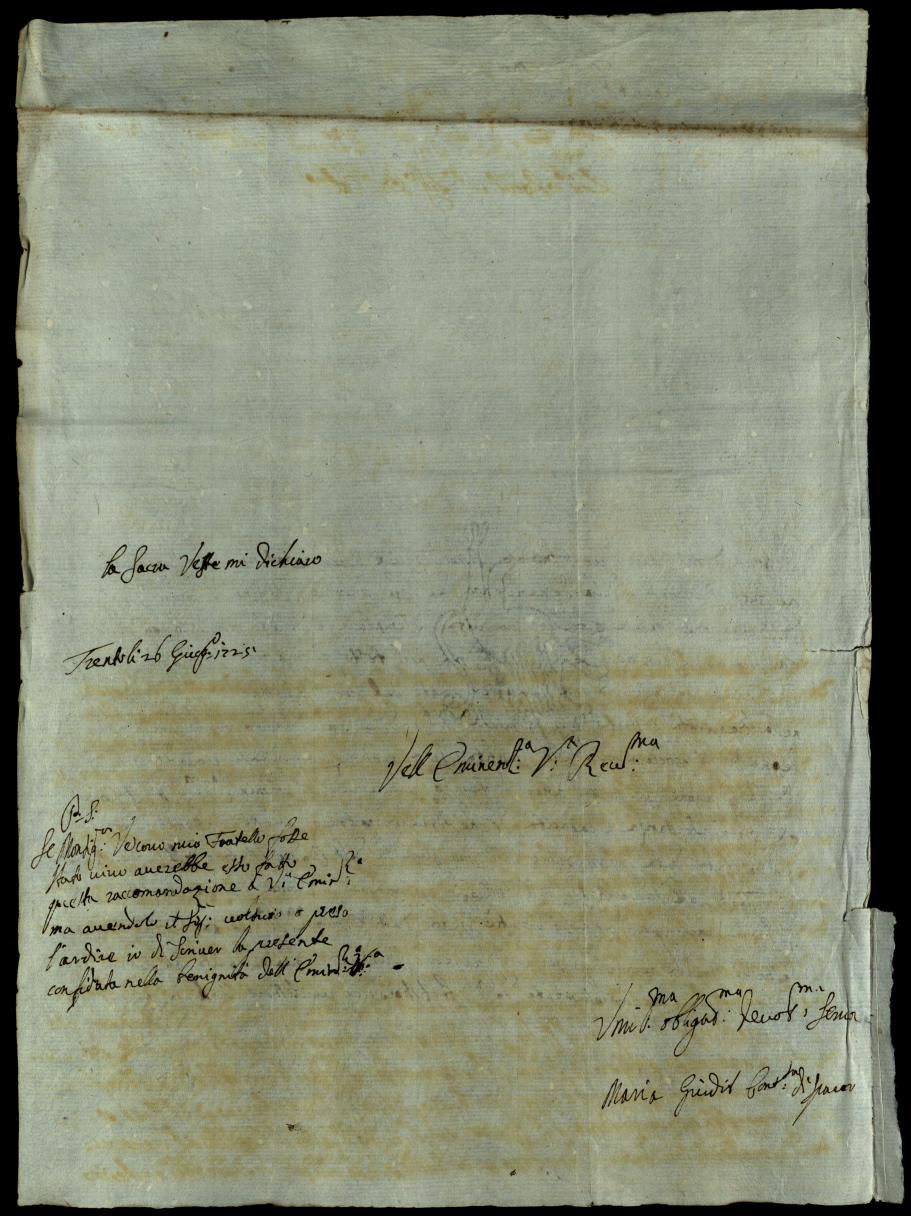 la Sacra Veste mi dichiaro
Trento li 26 Giug: 1725
Dell Eminent:za V:a Reud:ma
P. S.
Se Monsig:or Vescouo mio Fratello fosse
stato uiuo auerebbe esso fatto
questa raccomandazione à V:a Emin:za
ma auendolo il Sig: uoluto preso
l'ardire io di scriuer la presente
confidata nella benignità dell Emin:za V:a
Vmil:ma obligad:ma Deuot:ma Serua
Maria Giudit Cont:sa di